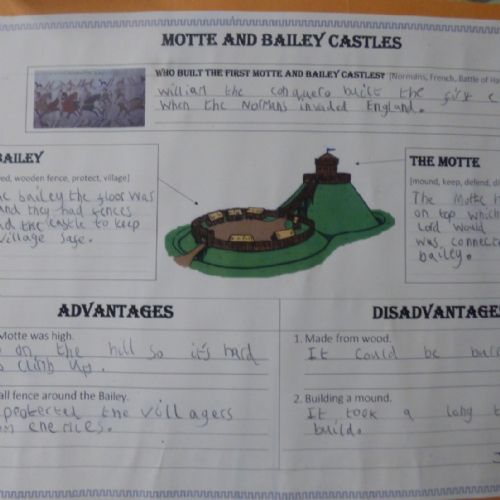 MOTTE AND BAILEY CASTLES
WHO BUILT THE FIRST MOTTE AND BAILEY CASTLES? [Normans, French, Battle of Ha
William the conquero built the first c
when the Normans invaded England.
BAILEY
ed, wooden fence, protect, village]
e bailey the floor was
and they had fences
d the castle to keep
village safe.
THE MOTTE
[mound, keep, defend, di
The Motte h
on top which
Lord would
was connecte
bailey.
ADVANTAGES
Motte was high.
on the hill so it's hard
climb up.
all fence around the Bailey.
protected the villagers
enemies.
DISADVANTAGE
1. Made from wood.
It could be bur
2. Building a mound.
It took a long t
build.